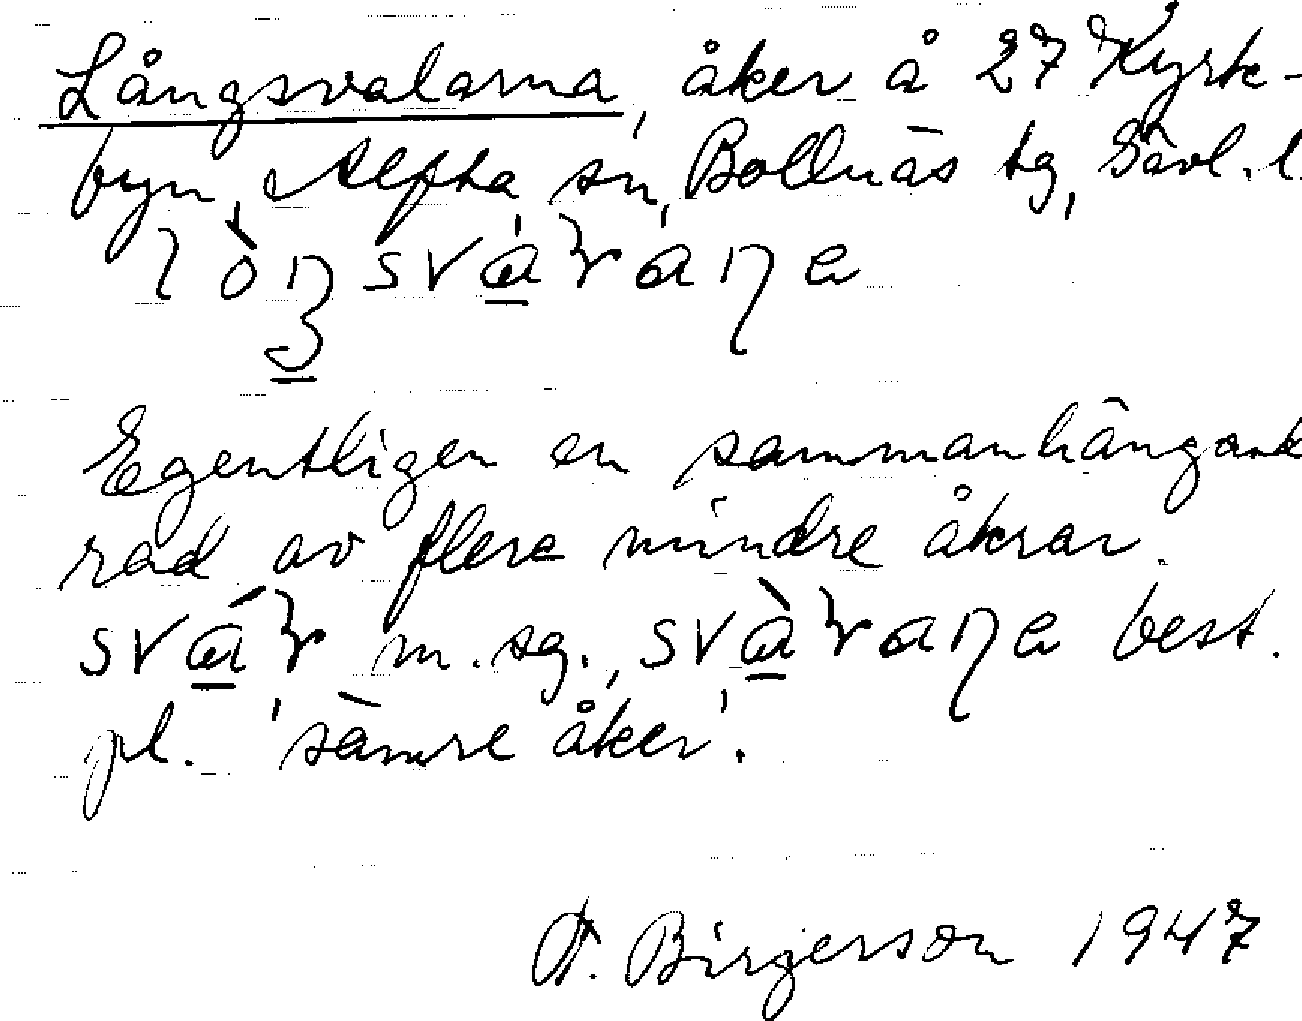 Långsvalarna, åker å 27 Kyrk-
byn, Alfta sn, Bollnäs tg, Gävl. l.
Egentligen en sammanhängand
rad av flere mindre åkrar.
m. sg., best.
pl. 'sämre åker'.
A. Birgerson 1947